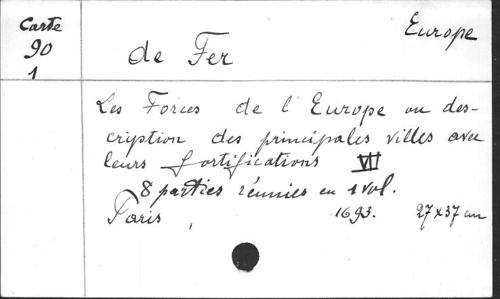 Carte
90
1
Europe
de Fer
Les Forces de l'Europe ou des-
cription des principales villes avec
leurs fortifications VII
8 parties réunies en 1 vol.
Paris, 1693. 27 x 37 cm